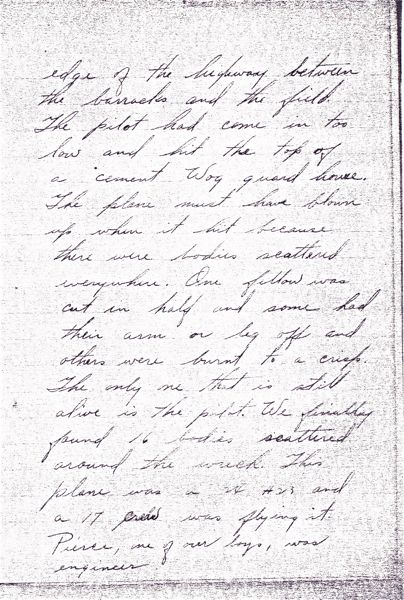 edge of the highway between
the barracks and the field.
The pilot had come in too
low and hit the top of
a cement Wog guard house.
The plane must have blown
up when it hit because
there were bodies scattered
everywhere. One fellow was
cut in half and some had
their arm or leg off and
others were burnt to a crisp.
The only one that is still
alive is the pilot. We finally
found 16 bodies scattered
around the wreck. This
plane was a 24 #23 and
a 17 crew was flying it.
Pierce, one of our boys, was
engineer